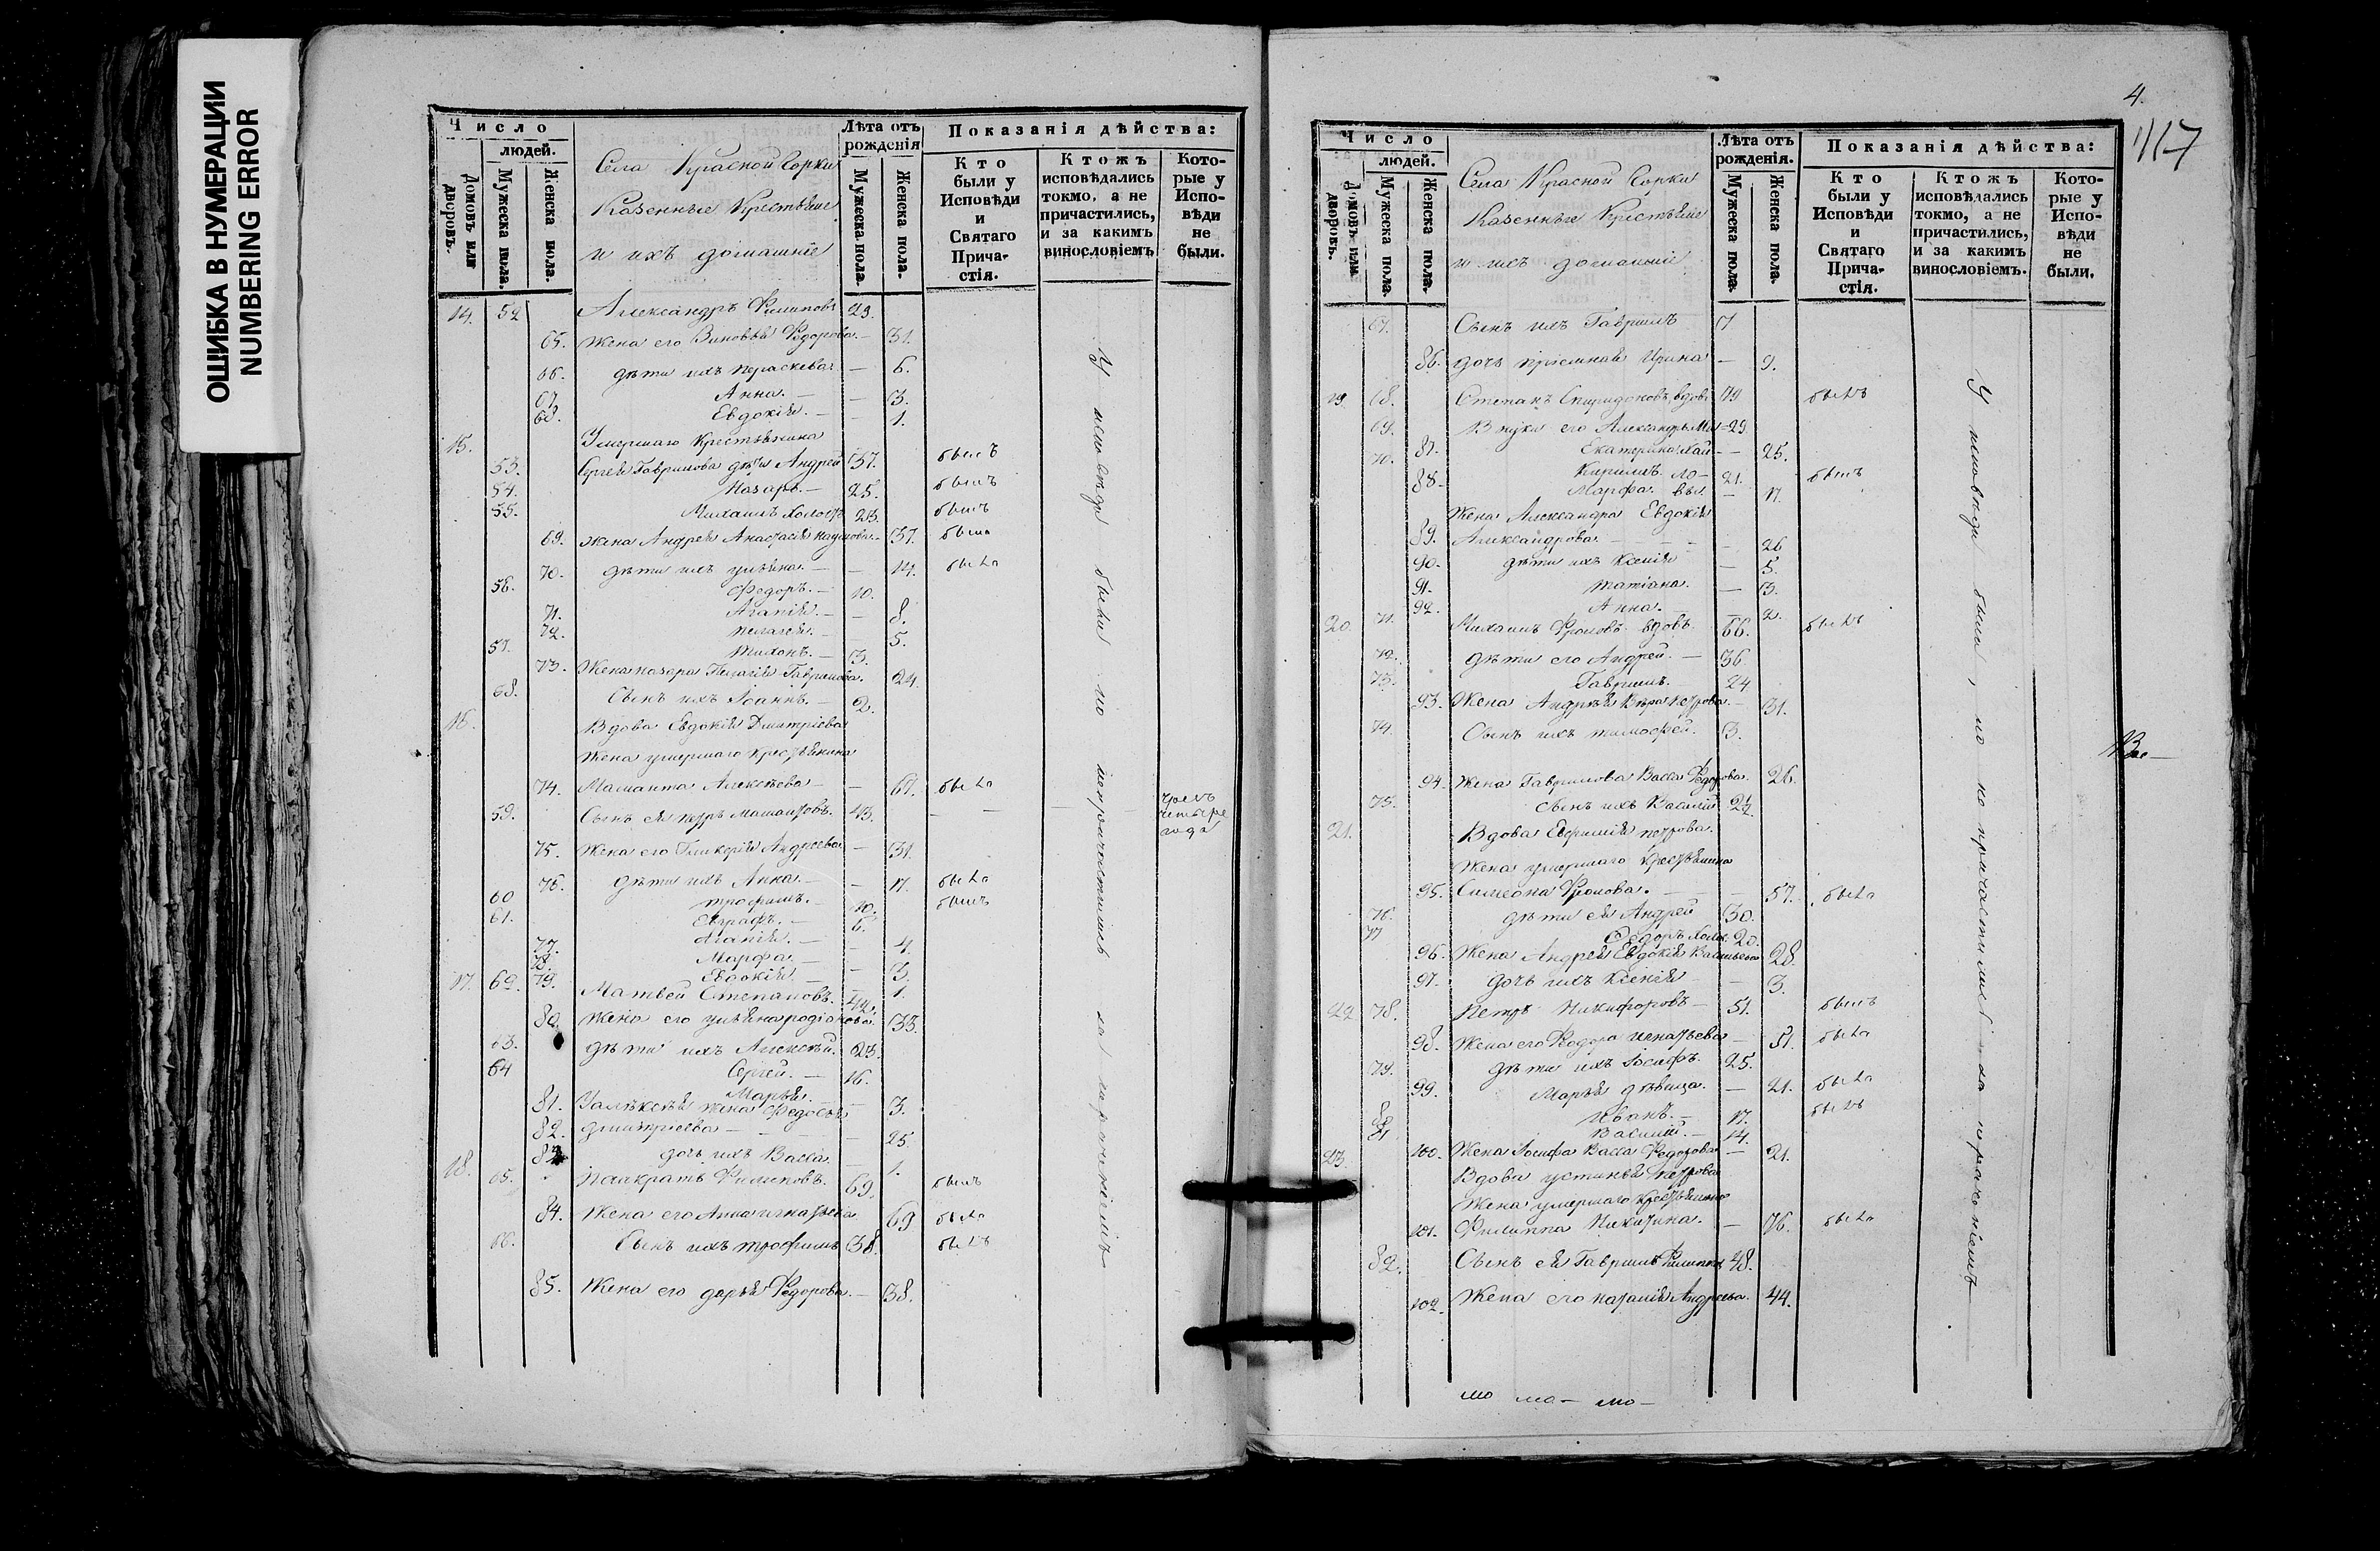 ОШИБКА В НУМЕРАЦИИ
NUMBERING ERROR
Число
людей.
Домовъ или дворовъ.
Мужеска пола.
Женска пола.
Села Красной Горки
Казенные Крестьяне
и ихъ домашніе
Лѣта отъ рожденія
Мужеска пола.
Женска пола.
Показанія дѣйства:
Кто были у Исповѣди и Святаго Прича-стія.
Ктожъ исповѣдались токмо, а не причастились, и за какимъ винословіемъ
Кото-рые у Испо-вѣди не были.
14. 52 Александръ Филиповъ 29.
65. Жена его Зиновья Федорова. — 31.
66. дѣти ихъ Параскева — 6.
67. Анна. — 3.
68. Евдокія. — 1.
15. Умершаго Крестьянина
53. Сергея Гаврилова дѣти Андрей 37. былъ
54. Назаръ. — 25. былъ
55. Михаилъ холостъ 23. былъ
69. жена Андрея Анастасія — 37. была
70. дѣти ихъ Ульяна. — 14. была
56. Федоръ. — 10.
71. Агапія. — 8.
72. Пелагея. — 5.
57. Тихонъ. — 3.
73. Жена Назара Пелагія Гаврилова. 24.
58. Сынъ ихъ Іоаннъ. — 2.
16. Вдова Евдокія Дмитріева
Жена умершаго крестьянина
74. Маманта Алексѣева — 67. была
59. Сынъ ея Петръ Мамантовъ. 43. — — — четыре года
75. Жена его Гликерія Андреева — 31.
76. дѣти ихъ Анна. — 17. была
60 Трофимъ. — 10. былъ
61. Евграфъ. — 6.
77. Агапія. — 4.
78. Марфа. — 3.
17. 62. 79. Евдокія — 1.
Матвей Степановъ. 42.
80. Жена его Ульяна Родіонова. 33.
63. дѣти ихъ Алексѣй. 23.
64 Сергей. — 16.
81. Марья. — 3.
У Алексѣя жена Федосья
82. Дмитріева — 25.
83 дочь ихъ Васса. — 1.
18. 65. Панкратъ Филиповъ. 69. былъ
84. Жена его Анна Игнатьева 69 была
66. Сынъ ихъ Трофимъ 38. былъ
85. Жена его Дарья Федорова. — 38.
У исповѣди были но непричастились за
4.
117
Число
людей.
Домовъ или дворовъ.
Мужеска пола.
Женска пола.
Села Красной Горки
Казенные Крестьяне
и ихъ домашніе
Лѣта отъ рожденія.
Мужеска пола.
Женска пола.
Показанія дѣйства:
Кто были у Исповѣди и Святаго Прича-стія.
Ктожъ исповѣдались токмо, а не причастились, и за какимъ винословіемъ.
Кото-рые у Испо-вѣди не были.
67. Сынъ ихъ Гаврилъ 17
86. дочь пріемная Ирина — 9.
19. 68. Степанъ Спиридоновъ вдовъ 79 былъ
69. Внуки его Александръ 29.
87. Екатерина — 25.
70. Кирилъ 21. былъ
88. Марфа — 17.
Жена Александра Евдокія
89. Александрова. — 26
90. дѣти ихъ Ксенія — 5.
91. Татіана. — 3.
92. Анна. — 2.
20. 71. Михаилъ Фроловъ вдовъ 66. былъ
72. дѣти его Андрей. — 36
73. Гаврилъ. — 24
93. Жена Андрея Вѣра Петрова. — 31.
74. Сынъ ихъ Тимофей. 3.
94. Жена Гаврилова Васса Федорова. 26.
75. сынъ ихъ Василій
21. Вдова Евфимія Петрова.
Жена умершаго крестьянина
95. Симеона Фролова. — 57. была
76. дѣти ея Андрей 30.
77 Федоръ холос. 20.
96. Жена Андрея Евдокія Васильева 28.
97. дочь ихъ Ксенія — 3.
22 78. Петръ Никифоровъ — 51. былъ
98. Жена его Федора Игнатьева — 51. была
79. дѣти ихъ Іосифъ 25.
99. Марья дѣвица. — 21. была
80 Иванъ. — 17. былъ
81 Василій. — 14.
23. 100. Жена Іосифа Васса Федорова — 21.
Вдова Устинья Петрова
Жена умершаго крестьянина
101. Филиппа Никитина. — 76. была
82. Сынъ ея Гаврилъ Филиппов 48.
102. Жена его Наталія Андреева. 44.
У исповѣди были, но не причастились за